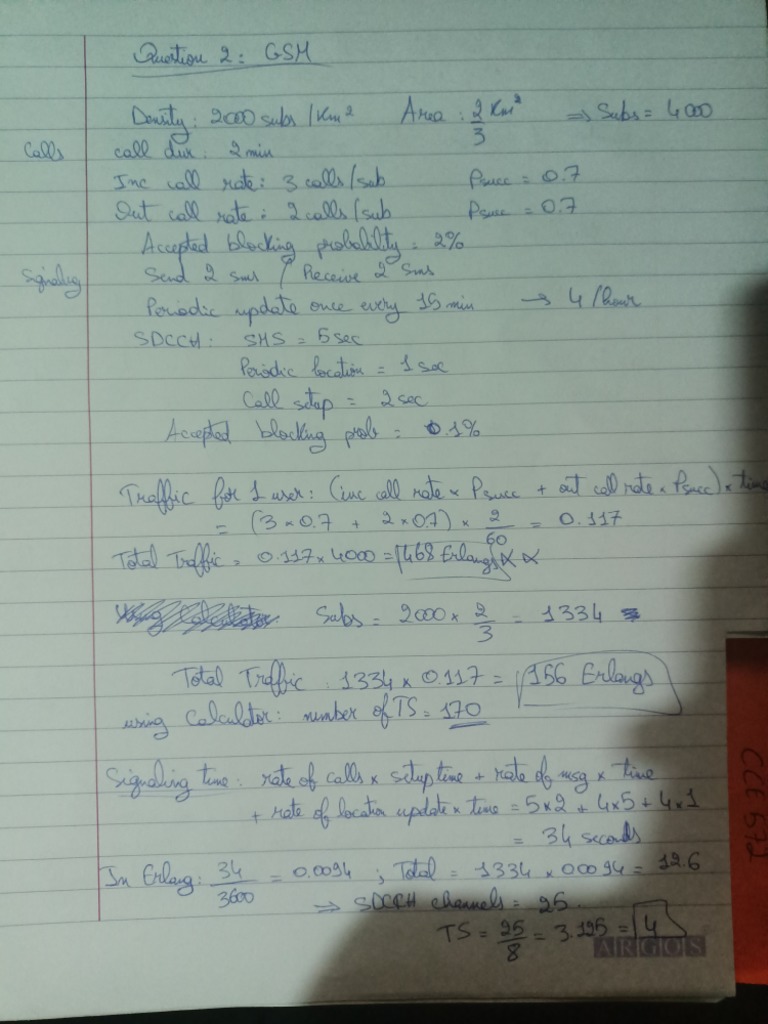 Question 2: GSM
Density: 2000 subs/Km² Area: 2/3 Km² ⇒ Subs = 4000
Calls call dur: 2 min
Inc call rate: 3 calls/sub Psucc = 0.7
Out call rate: 2 calls/sub Psucc = 0.7
Accepted blocking probability = 2%
Signaling Send 2 sms / Receive 2 sms
Periodic update once every 15 min → 4/hour
SDCCH: SMS = 5 sec
Periodic location = 1 sec
Call setup = 2 sec
Accepted blocking prob = 0.1%
Traffic for 1 user: (inc call rate × Psucc + out call rate × Psucc) × time
= (3 × 0.7 + 2 × 0.7) × 2/60 = 0.117
Total Traffic = 0.117 × 4000 = 468 Erlangs
Subs = 2000 × 2/3 = 1334
Total Traffic: 1334 × 0.117 = 156 Erlangs
using Calculator: number of TS = 170
Signaling time: rate of calls × setup time + rate of msg × time
+ rate of location update × time = 5×2 + 4×5 + 4×1
= 34 seconds
In Erlang: 34/3600 = 0.0094 ; Total = 1334 × 00094 = 12.6
⇒ SDCCH channels = 25.
TS = 25/8 = 3.125 = 4
ARGOS
CCE 572